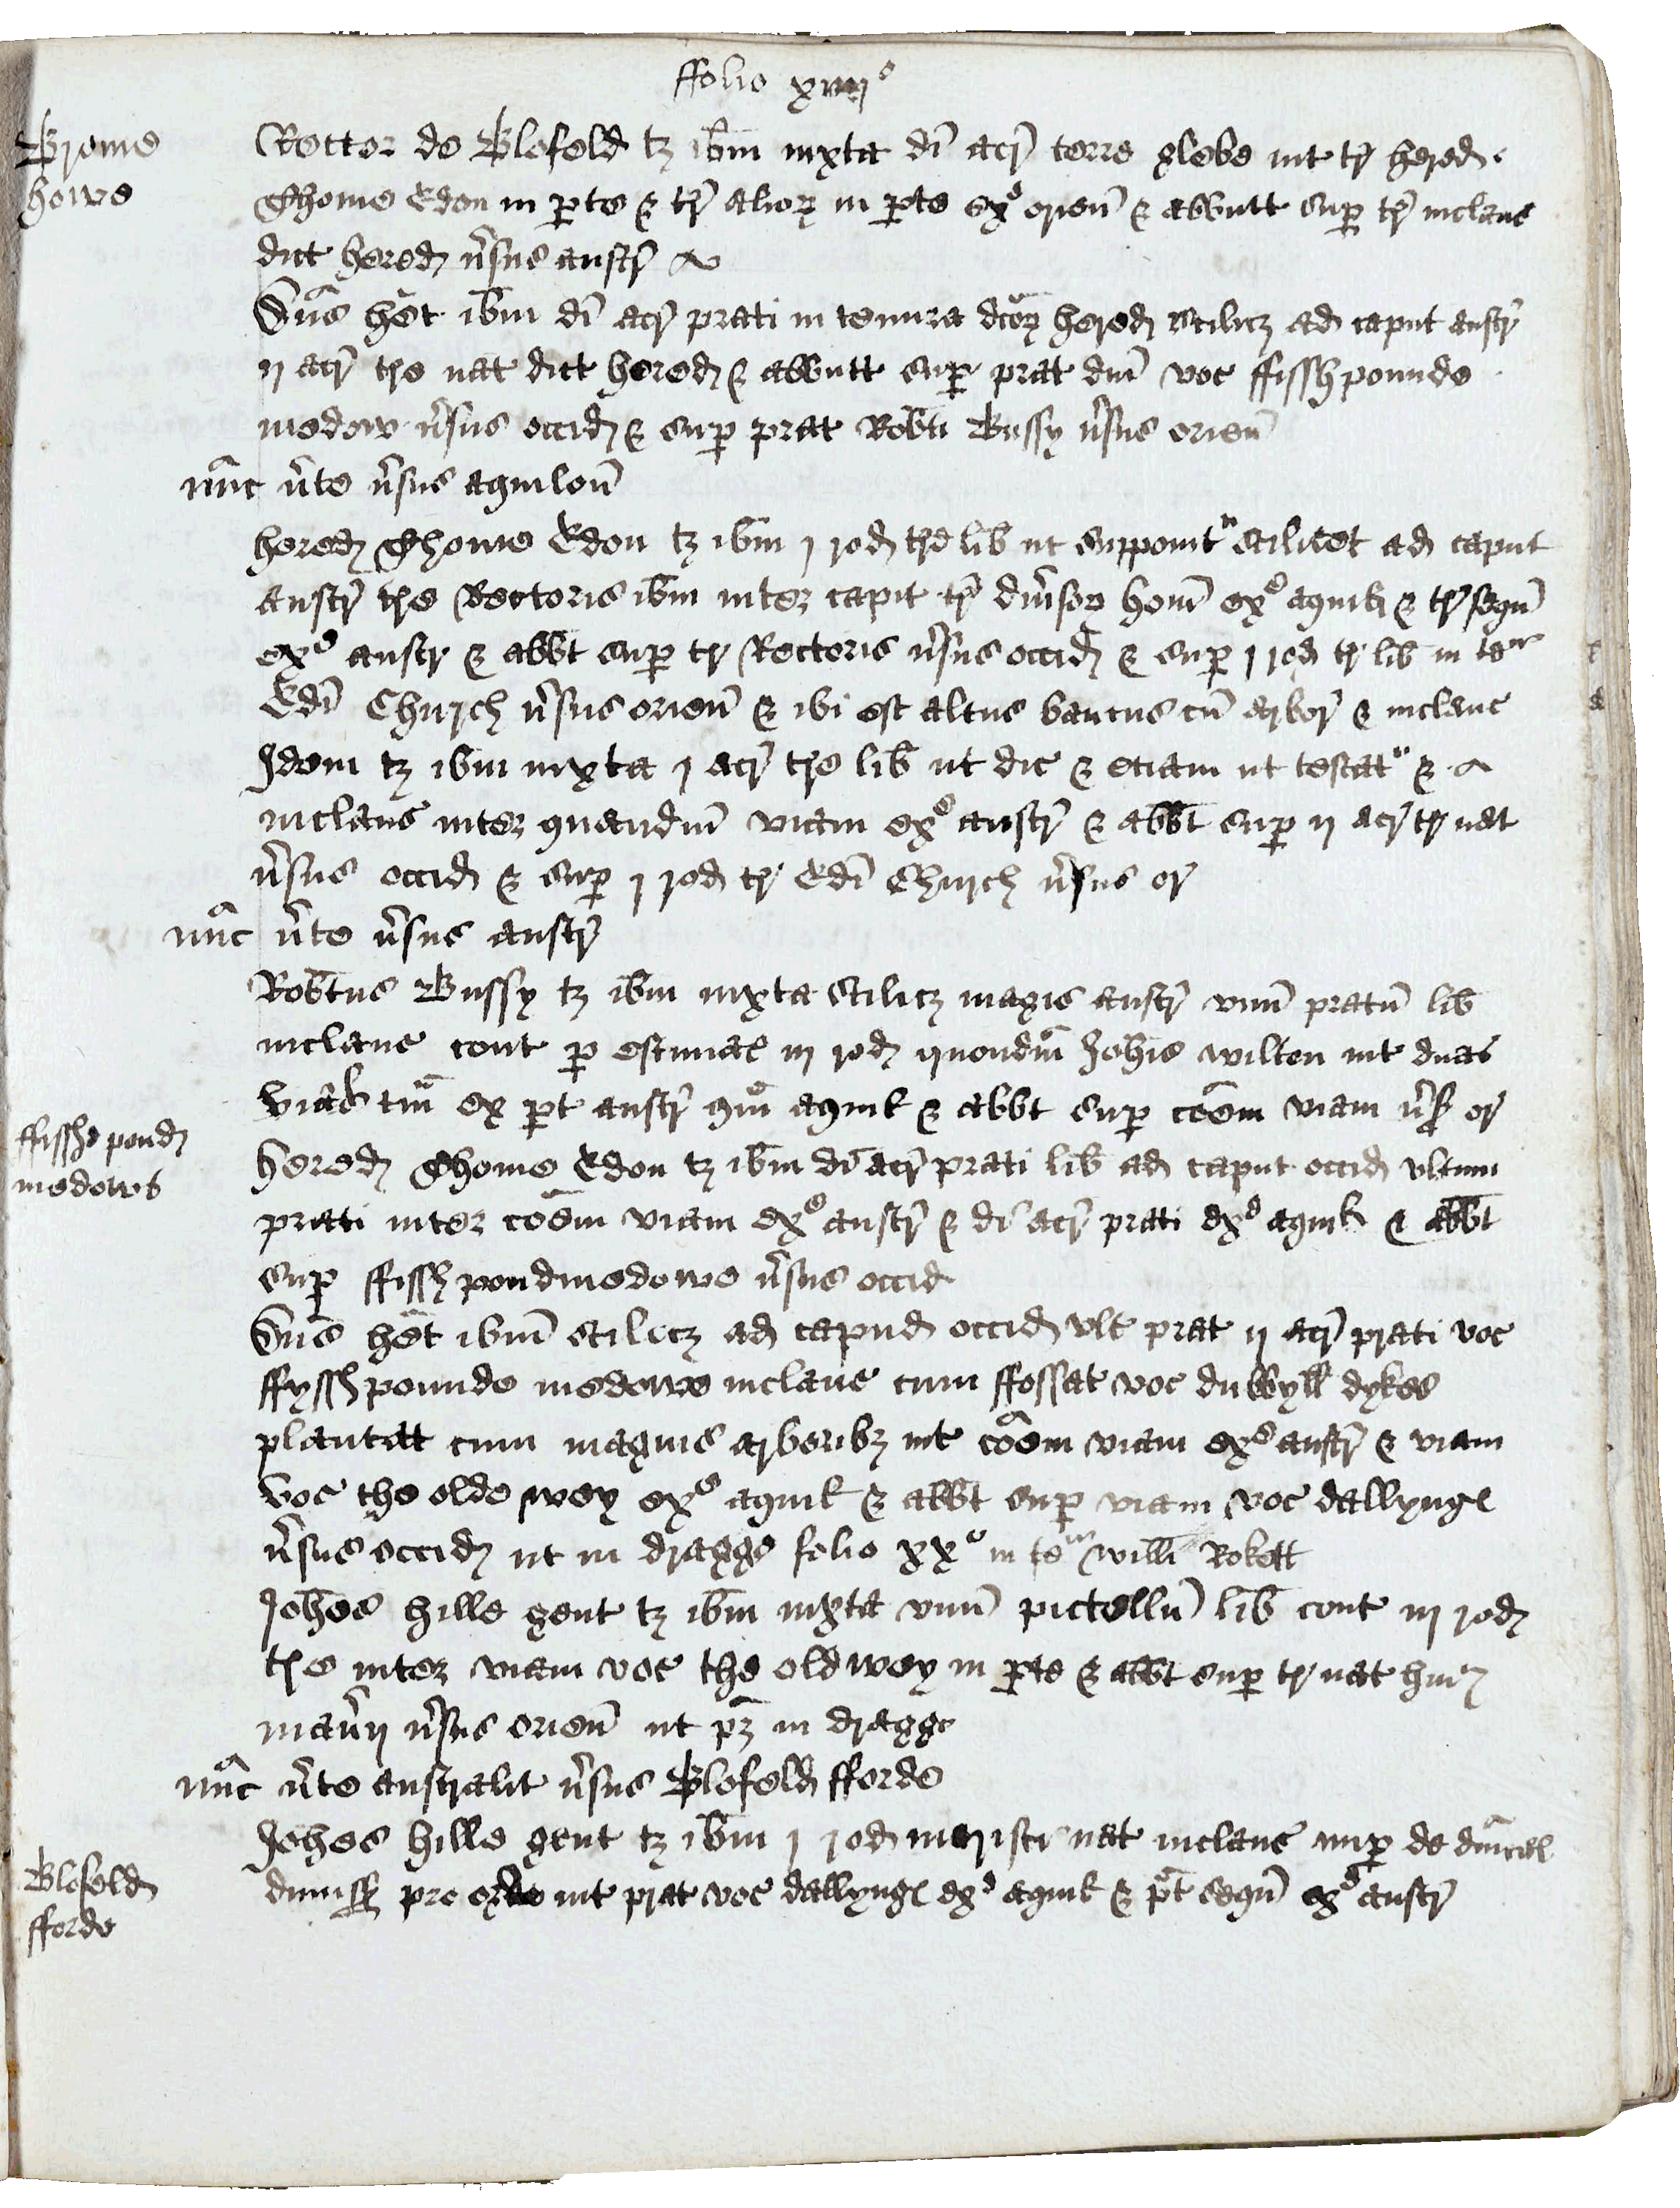 ffolio xiiijº
Brome
howe
Rector de Blofeld tz ib̄m iuxta di acr̄ terre glebe int tr̄ hered
Thome Edon in pte & tr̄ alior in pte exº orien̄ & abbutt sup tr̄ inclaus
dict hered v̄sus austr̄
Dn̄s het ib̄m di acr̄ prati in tenura dcor hered scilicz ad caput austr̄
ij acr̄ tre nat dict hered & abbutt sup prat dn̄i voc ffissh pounde
medow v̄sus occid & sup prat Rob̄ti Bussy v̄sus orien̄
nūc v̄te v̄sus aquilon̄
hered Thome Edon tz ib̄m j rod tre lib̄ ut supponit scilicet ad caput
austr̄ tre Rectoris ib̄m inter capit tr̄ div̄sor hom̄ exº aquil & tr̄ seqū
exº austr & abbt sup tr Rectoris v̄sus occid & sup j rod tr lib̄ in te
Edi Church v̄sus orien̄ & ibi est altus bancus cū arbor̄ & inclaus
Idem tz ib̄m iuxta j acr̄ tre lib̄ ut dic & etiam ut testat &
inclaus inter quandm̄ viam exº austr̄ & abbt sup ij acr̄ tr nat
v̄sus occid & sup j rod tr Edi Church v̄sus or
nūc v̄te v̄sus austr̄
Rob̄tus Bussy tz ib̄m iuxta scilicz magis austr̄ vnū pratū lib̄
inclaus cont p estimac iij rod quondm̄ Joh̄is wilton int duas
vias tm̄ ex pt austr̄ qm̄ aquil & abbt sup coēm viam v̄s or
ffisshe pond
medows
hered Thome Edon tz ib̄m di acr̄ prati lib̄ ad caput occid vltimi
prati inter coēm viam exº austr̄ & di acr̄ prati exº aquil & abbt
sup ffissh pondmedowe v̄sus occid
Dn̄s het ib̄m scilicz ad capud occid vlt prat ij acr̄ prati voc
ffyssh pounde medowe inclaus cum ffossat voc dubbyll dykes
plantat cum magnis arboribz int coēm viam exº austr̄ & viam
voc the olde wey exº aquil & abbt sup viam voc dallyng
v̄sus occid ut in dragge folio xxº in te Willi Rokett
Joh̄es hille gent tz ib̄m iuxta vnū pictellū lib̄ cont iij rod
tre inter viam voc the old wey in pte & abbt sup tr nat huj
man̄ij v̄sus orien̄ ut pz in dragge
nūc v̄te australit v̄sus Blofeld fforde
Blofeld
fforde
Johes hille gent tz ib̄m j rod nat inclaus nup de dn̄ical
dimiss pro int prat voc dallyng exº aquil & pt seqū exº austr̄